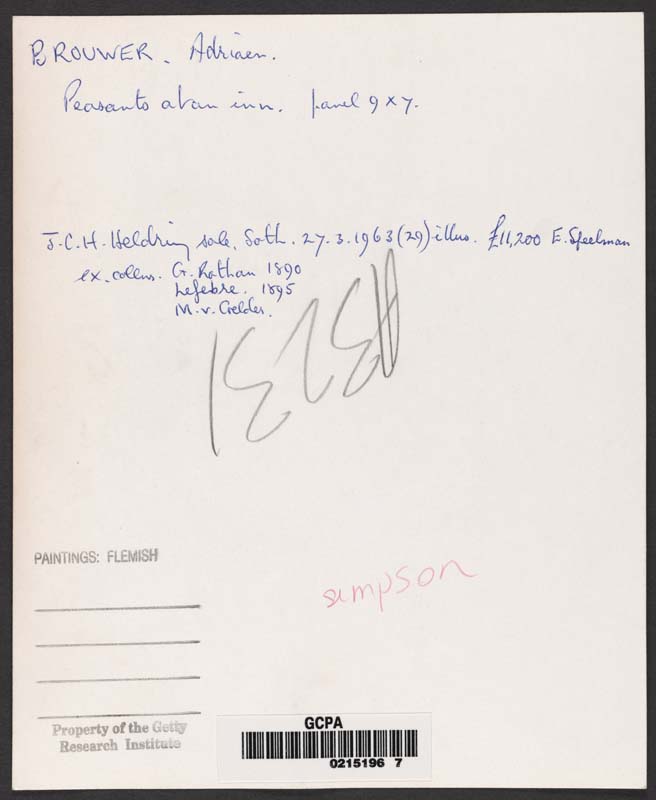 BROUWER. Adriaen.
Peasants at an inn. panel 9 x 7.
J.C.H. Heldring sale. Soth. 27.3.1963 (29) illus. £11,200 E. Speelman
ex. collns. G. Rothan 1890
Lefebre. 1895
M. v. Gelder.
PAINTINGS: FLEMISH
simpson
Property of the Getty
Research Institute
GCPA
0215196 7